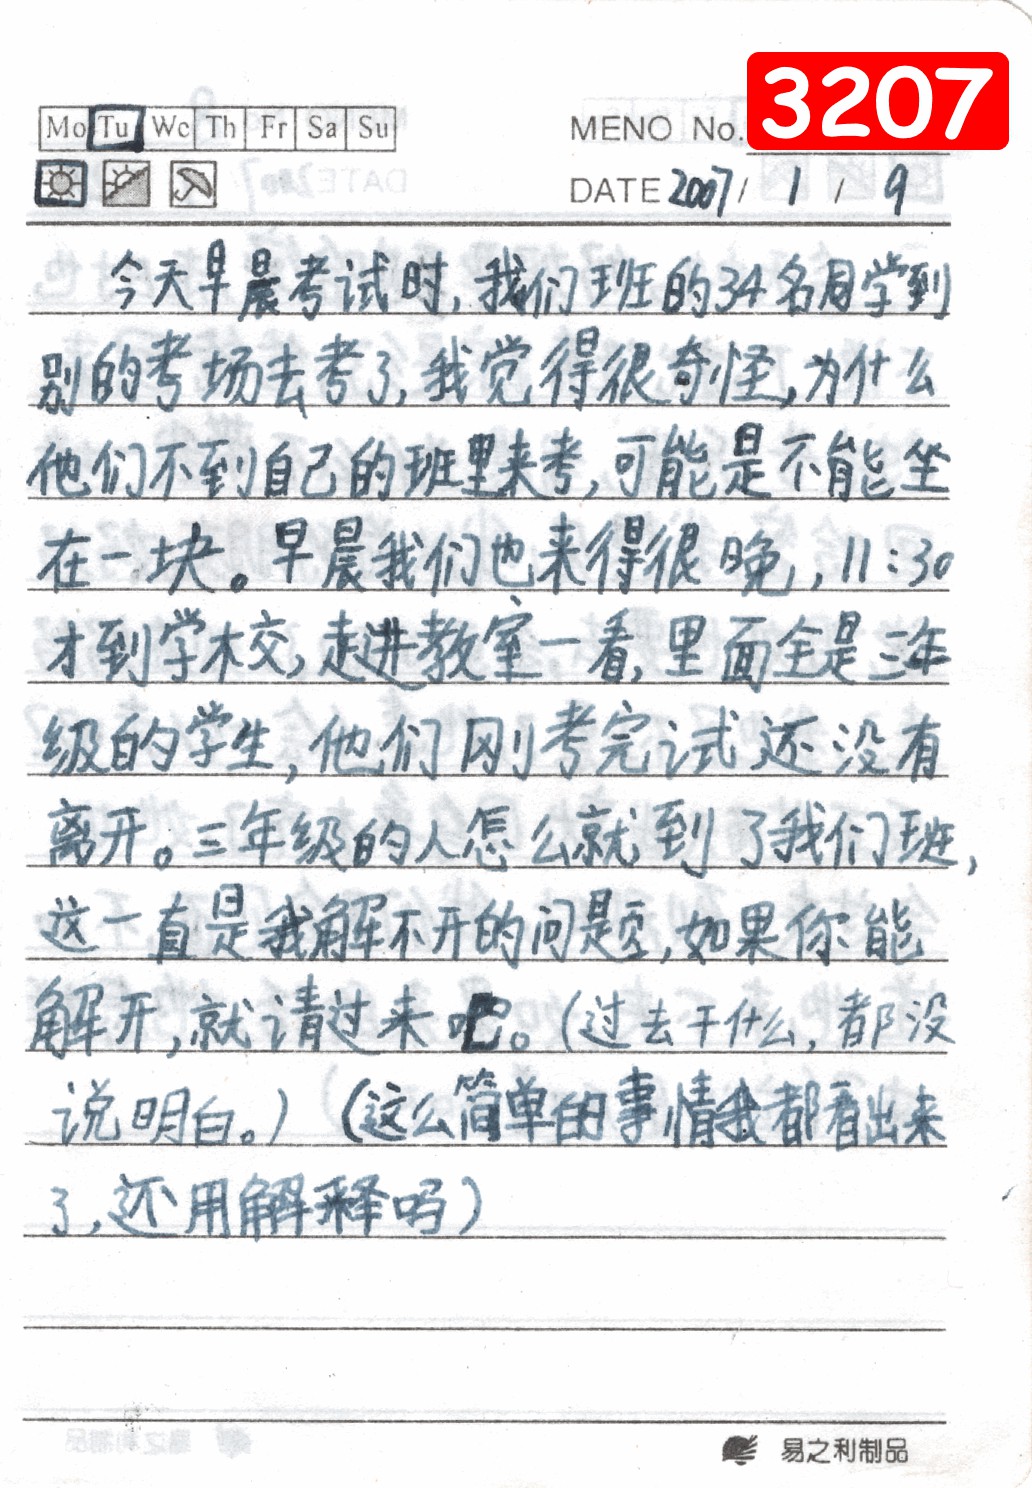 3207
Mo Tu We Th Fr Sa Su
MENO No.
DATE 2007 / 1 / 9
今天早晨考试时,我们班的34名同学到
别的考场去考了,我觉得很奇怪,为什么
他们不到自己的班里来考,可能是不能坐
在一块。早晨我们也来得很晚,11:30
才到学校,走进教室一看,里面全是三年
级的学生,他们刚考完试还没有
离开。三年级的人怎么就到了我们班,
这一直是我解不开的问题,如果你能
解开,就请过来吧。(过去干什么,都没
说明白。) (这么简单的事情我都看出来
了,还用解释吗)
易之利制品